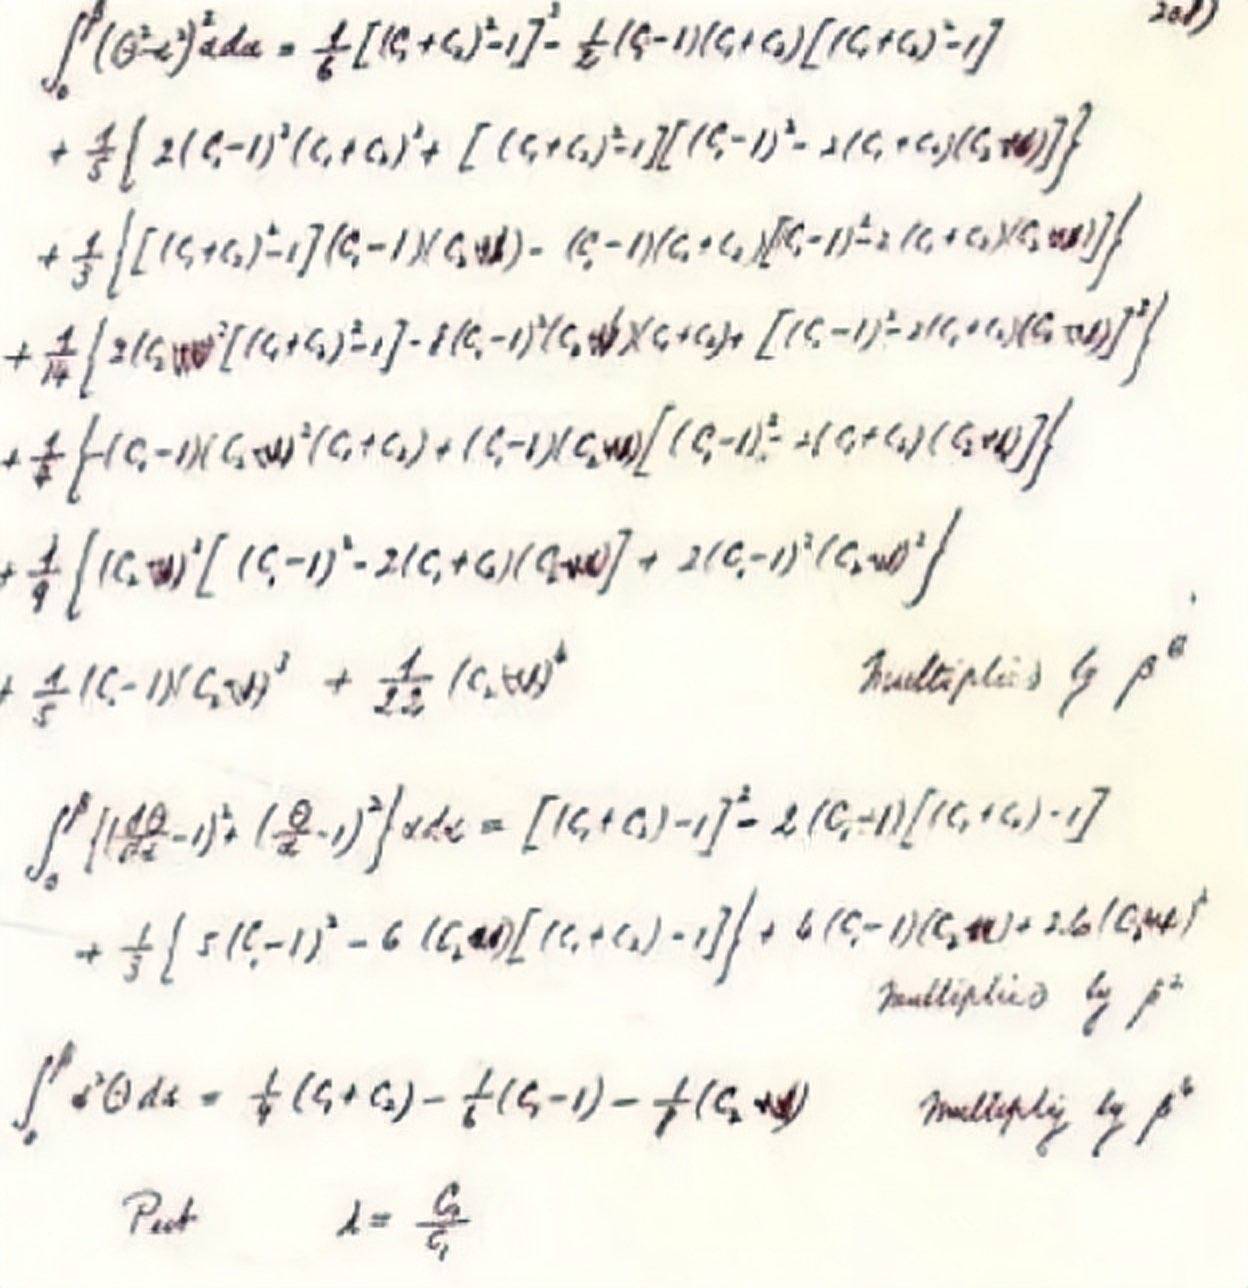 ∫₀^β (θ²-α²)² α dα = 1/6 [(C₁+C₂)²-1]² - 1/2 (C₁-1)(C₁+C₂)[(C₁+C₂)²-1]
+ 1/5 { 2(C₁-1)²(C₁+C₂)² + [(C₁+C₂)²-1][(C₁-1)² - 2(C₁+C₂)(C₂)] }
+ 1/3 { [(C₁+C₂)²-1](C₁-1)(C₂) - (C₁-1)(C₁+C₂)[(C₁-1)² - 2(C₁+C₂)(C₂)] }
+ 1/14 { 2(C₂)²[(C₁+C₂)²-1] - 8(C₁-1)²(C₂)(C₁+C₂) + [(C₁-1)² - 2(C₁+C₂)(C₂)]² }
+ { -(C₁-1)(C₂)²(C₁+C₂) + (C₁-1)(C₂)[(C₁-1)² - 2(C₁+C₂)(C₂)] }
+ 1/9 { (C₂)²[(C₁-1)² - 2(C₁+C₂)(C₂)] + 2(C₁-1)²(C₂)² }
+ 1/5 (C₁-1)(C₂)³ + 1/22 (C₂)⁴ Multiplied by β
∫₀^β {(dθ/dα -1)² + (θ/α -1)²} α dα = [(C₁+C₂)-1]² - 2(C₁-1)[(C₁+C₂)-1]
+ 1/3 { 5(C₁-1)² - 6(C₂)[(C₁+C₂)-1] } + 6(C₁-1)(C₂) + 2.6(C₂)²
Multiplied by β²
∫₀^β α²θ dα = 1/4 (C₁+C₂) - 1/6 (C₁-1) - 1/8 (C₂) Multiply by β⁴
Put λ = C₂/C₁